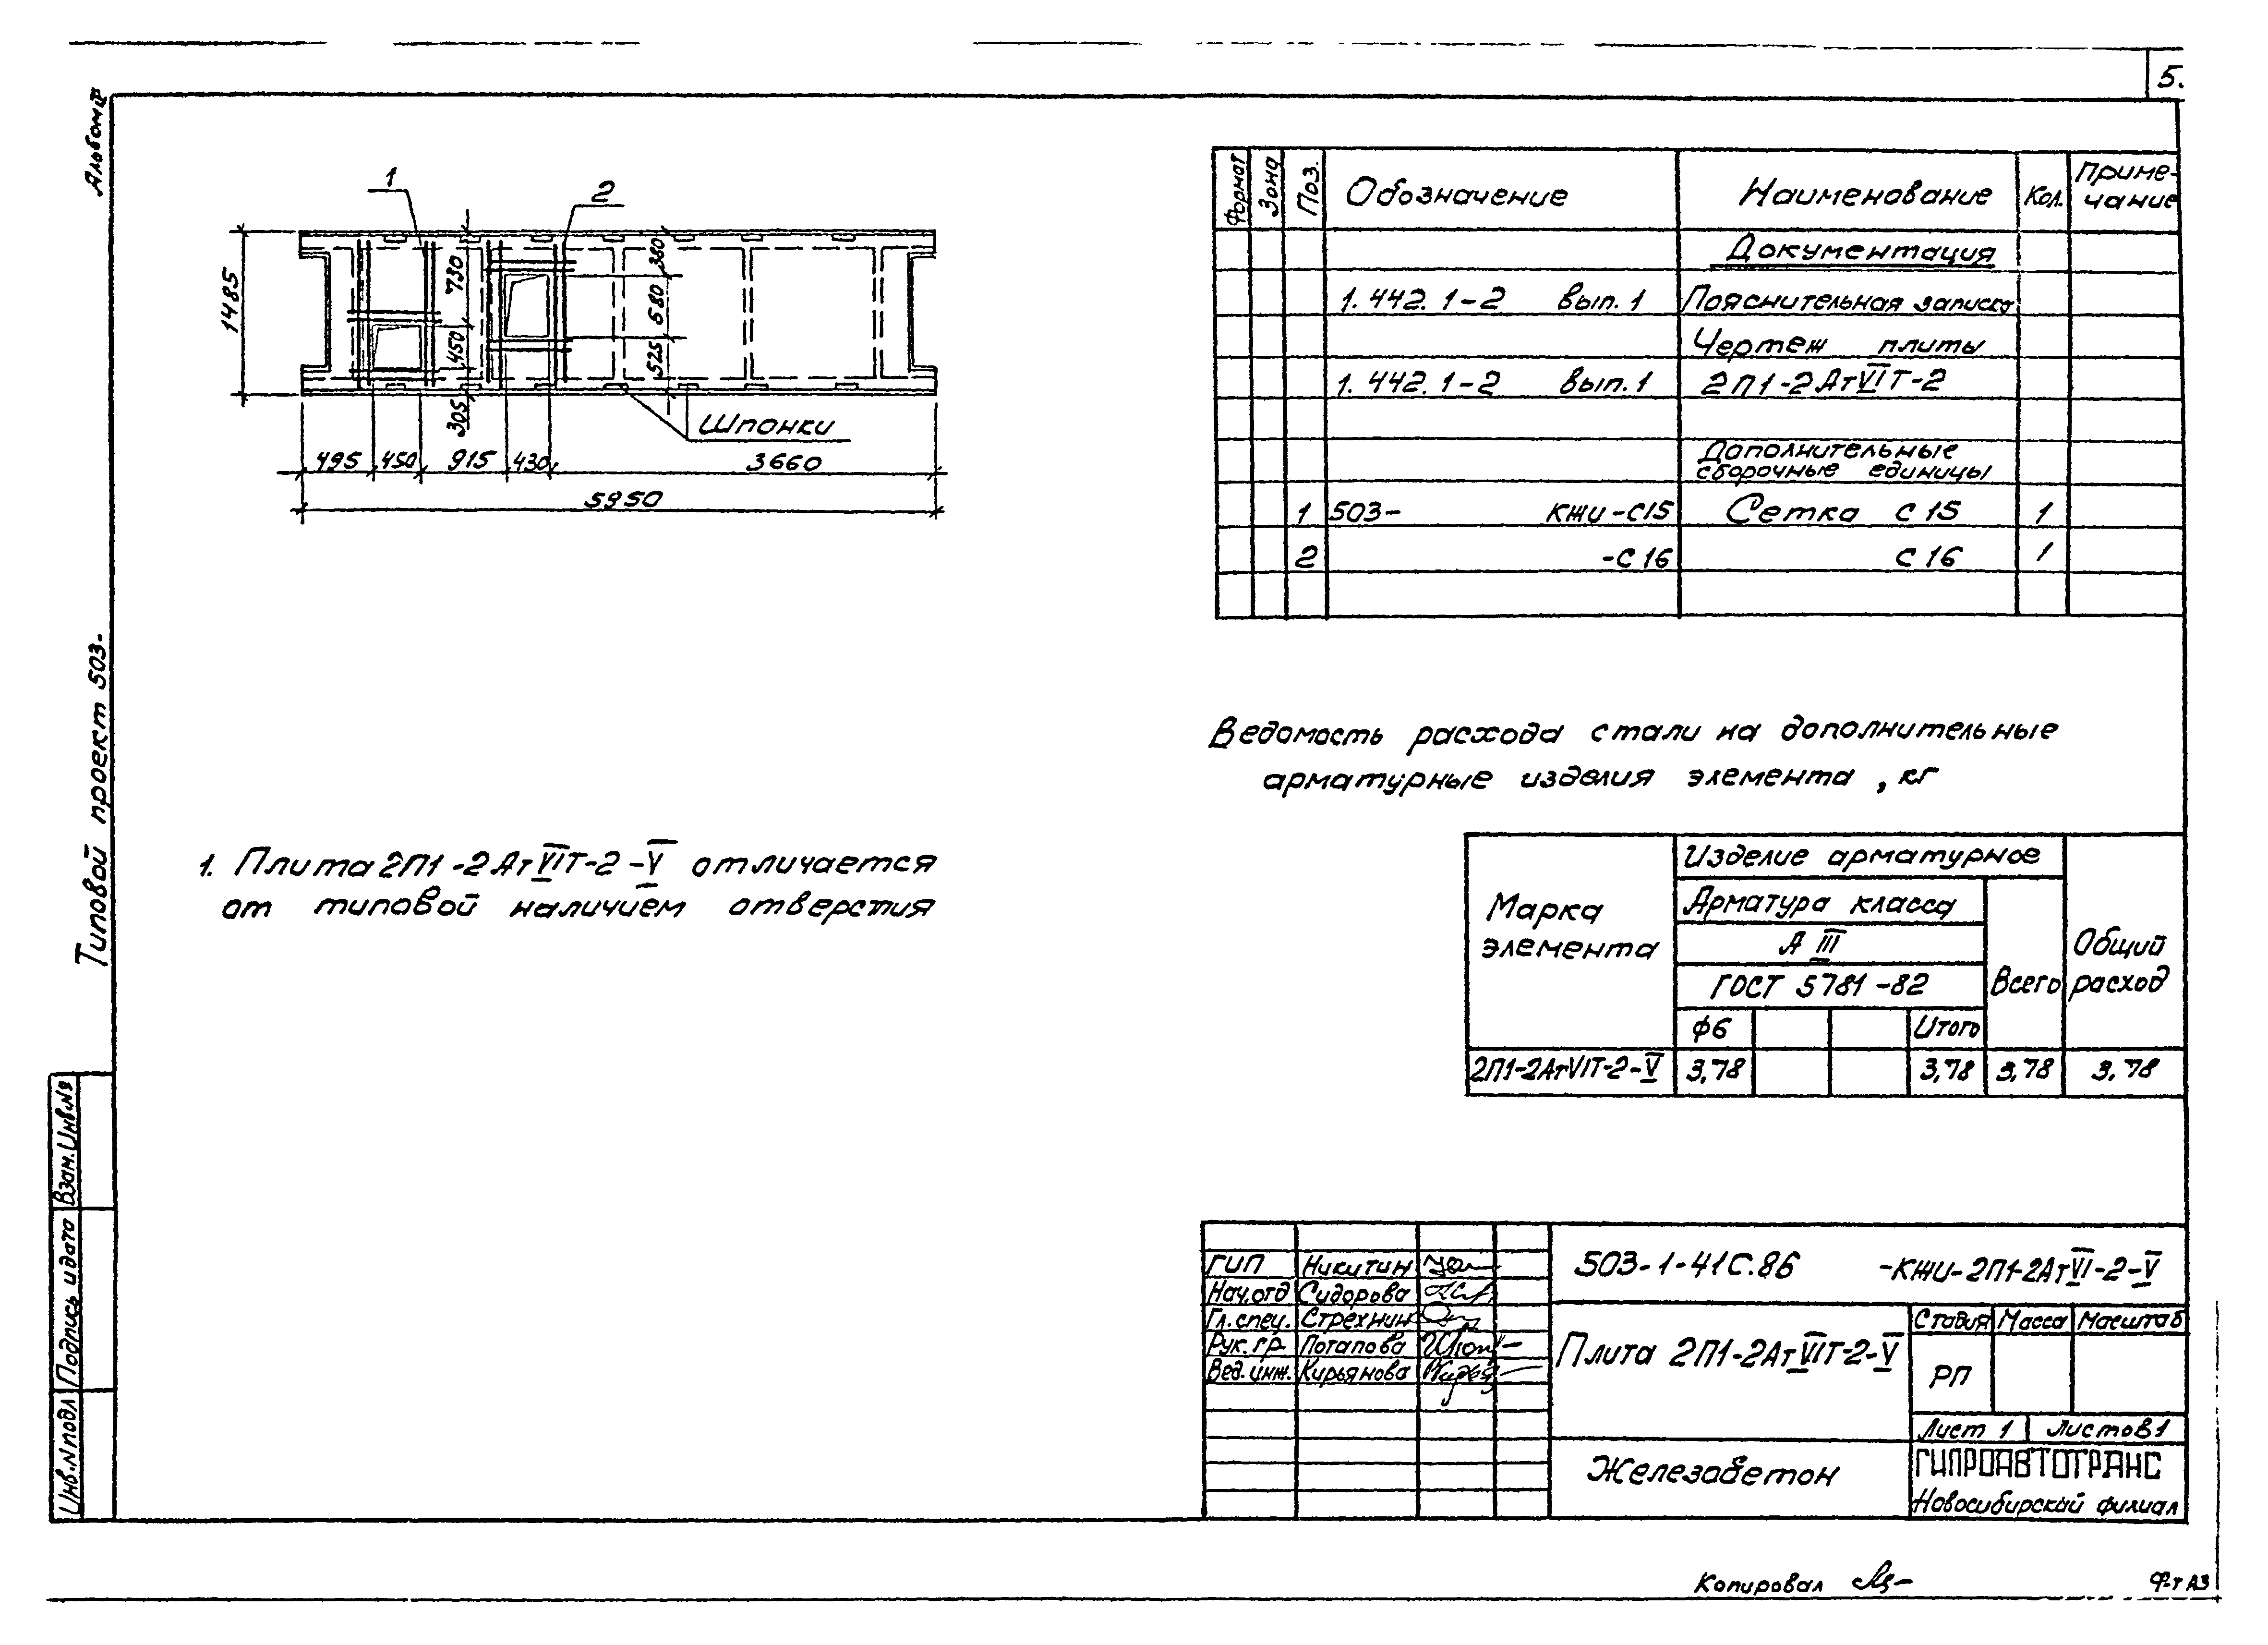 5.
Альбом V
Типовой проект 503-
1
2
1485
730
450
305
380
680
525
Шпонки
495 450 915 430 3660
5950
Формат Зона Поз. Обозначение Наименование Кол. Приме-
чание
Документация
1.442.1-2 вып.1 Пояснительная записка
Чертеж плиты
1.442.1-2 вып.1 2П1-2АтVIТ-2
Дополнительные
сборочные единицы
1 503- КЖИ-С15 Сетка С15 1
2 -С16 С16 1
Ведомость расхода стали на дополнительные
арматурные изделия элемента, кг
Марка
элемента
Изделие арматурное
Арматура класса
А III
ГОСТ 5781-82
Всего
Общий
расход
ф6 Итого
2П1-2АтVIТ-2-V 3,78 3,78 3,78 3,78
1. Плита 2П1-2АтVIТ-2-V отличается
от типовой наличием отверстия
Взам.Инв.№
Подпись и дата
Инв.№подл
ГИП Никитин
Нач.отд Сидорова
Гл.спец. Стрехнин
Рук.гр. Потапова
Вед.инж. Кирьянова
503-1-41С.86 -КЖИ-2П1-2АтVI-2-V
Плита 2П1-2АтVIТ-2-V
Стадия Масса Масштаб
РП
Лист 1 Листов 1
Железобетон
ГИПРОАВТОТРАНС
Новосибирский филиал
Копировал
Ф-т А3